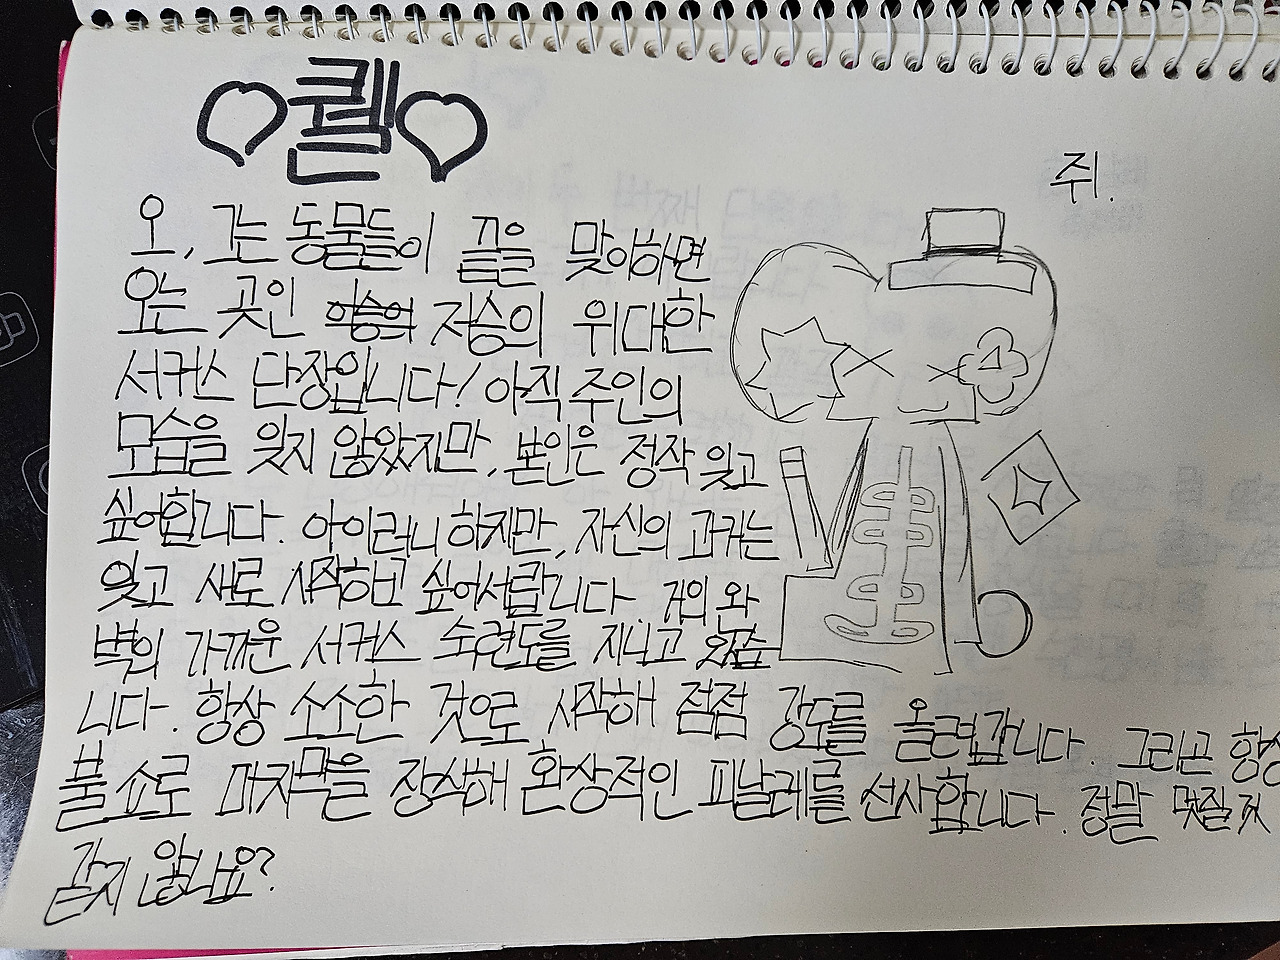 ♡퀡♡
쥐.
오, 그는 동물들이 끝을 맞이하면
오는 곳인 저승의 위대한
서커스 단장입니다! 아직 주인의
모습을 잊지 않았지만, 본인은 정작 잊고
싶어합니다. 아이러니 하지만, 자신의 과거는
잊고 새로 시작하고 싶어서랍니다. 거의 완
벽의 가까운 서커스 숙련도를 지니고 있습
니다. 항상 소소한 것으로 시작해 점점 강도를 올려갑니다. 그리곤 항상
불 쇼로 마지막을 장식해 환상적인 피날레를 선사합니다. 정말 멋질 것
같지 않나요?